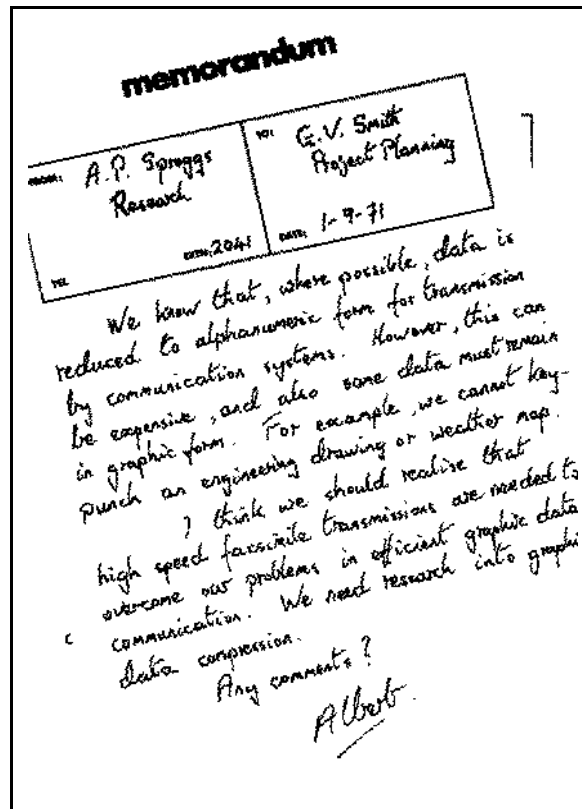 memorandum
FROM: A.P. Sproggs
Research
TEL EXTN: 2041
TO: G.V. Smith
Project Planning
DATE: 1-9-71
We know that, where possible, data is
reduced to alphanumeric form for transmission
by communication systems. However, this can
be expensive, and also some data must remain
in graphic form. For example, we cannot key-
punch an engineering drawing or weather map.
I think we should realise that
high speed facsimile transmissions are needed to
overcome our problems in efficient graphic data
communication. We need research into graphi
data compression.
Any comments?
Albert.